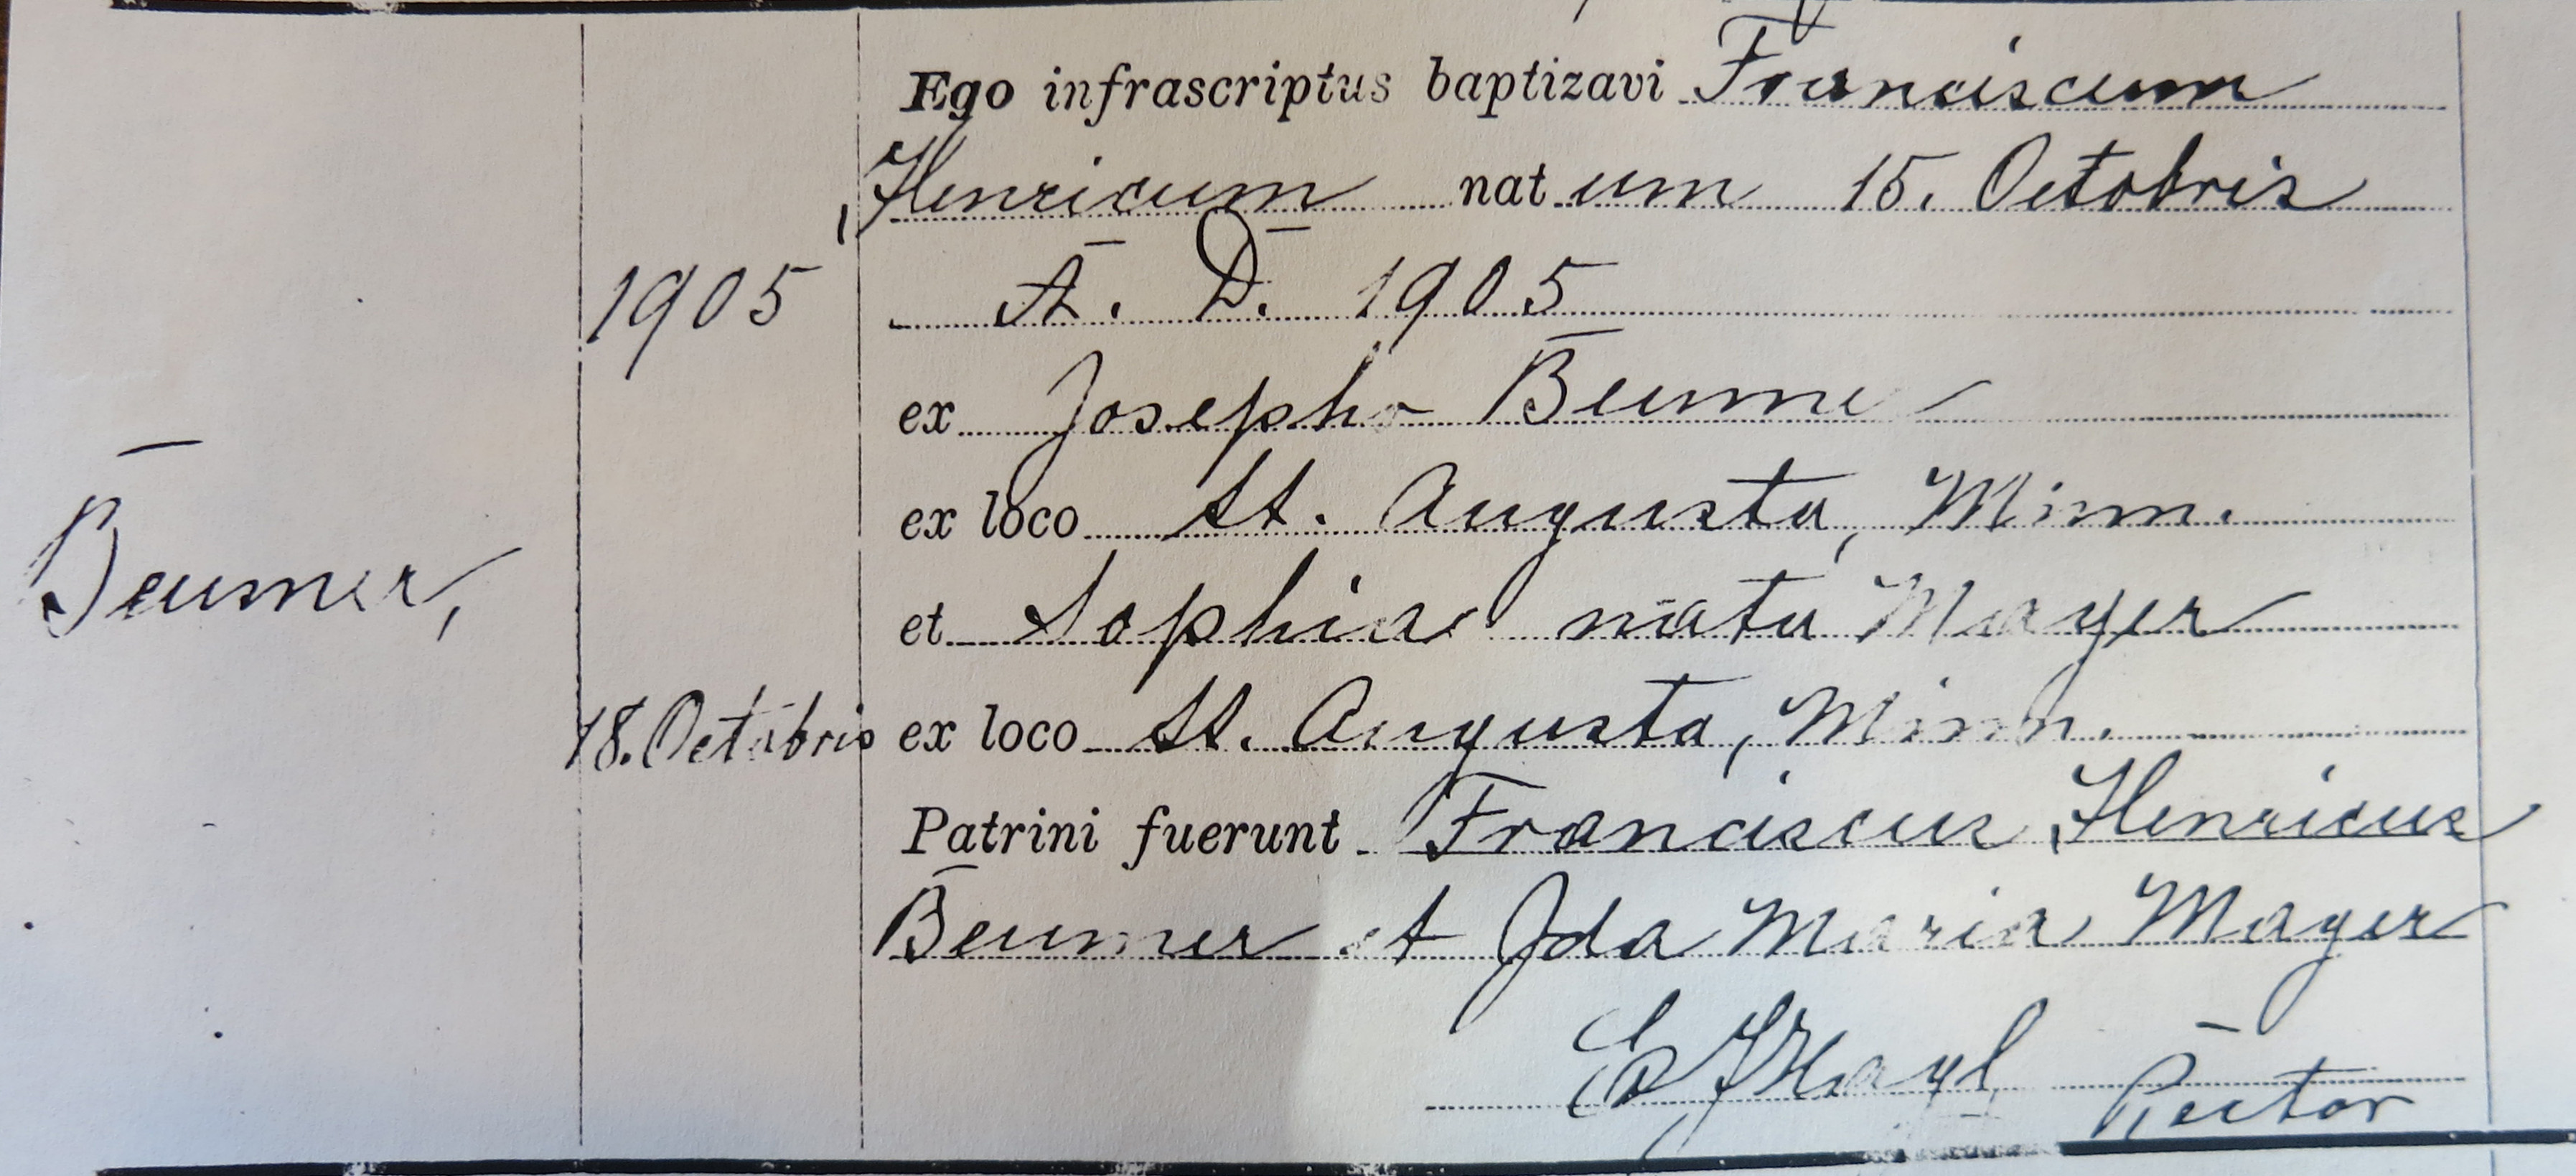 Ego infrascriptus baptizavi Franciscum
Henricum natum 15. Octobris
1905
A. D. 1905
ex Josepho Beumer
ex loco St. Augusta, Minn.
Beumer,
et Sophia nata Mayer
18. Octobris
ex loco St. Augusta, Minn.
Patrini fuerunt Franciscus Henricus
Beumer et Ida Maria Mayer
Rector